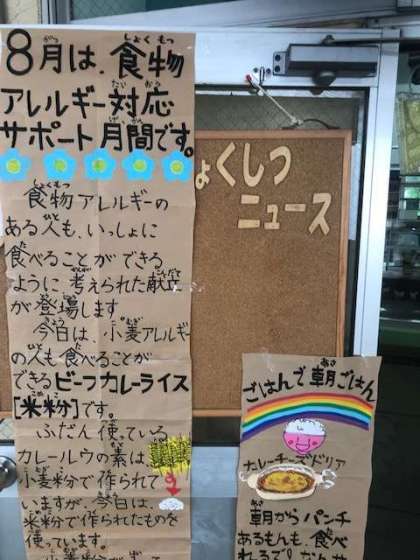 8月は、食物
アレルギー対応
サポート月間です。
食物アレルギーの
ある人も、いっしょに
食べることができる
ように考えられた献立
が登場します
今日は、小麦アレルギー
の人も食べることが
できるビーフカレーライス
[米粉]です。
ふだん使っている
カレールウの素は、
小麦粉で作られて
いますが今日は、
米粉で作られたものを
使っています。
ょくしつ
ニュース
ごはんで朝ごはん
カレーチーズドリア
朝からパンチ
あるもんも、食べ